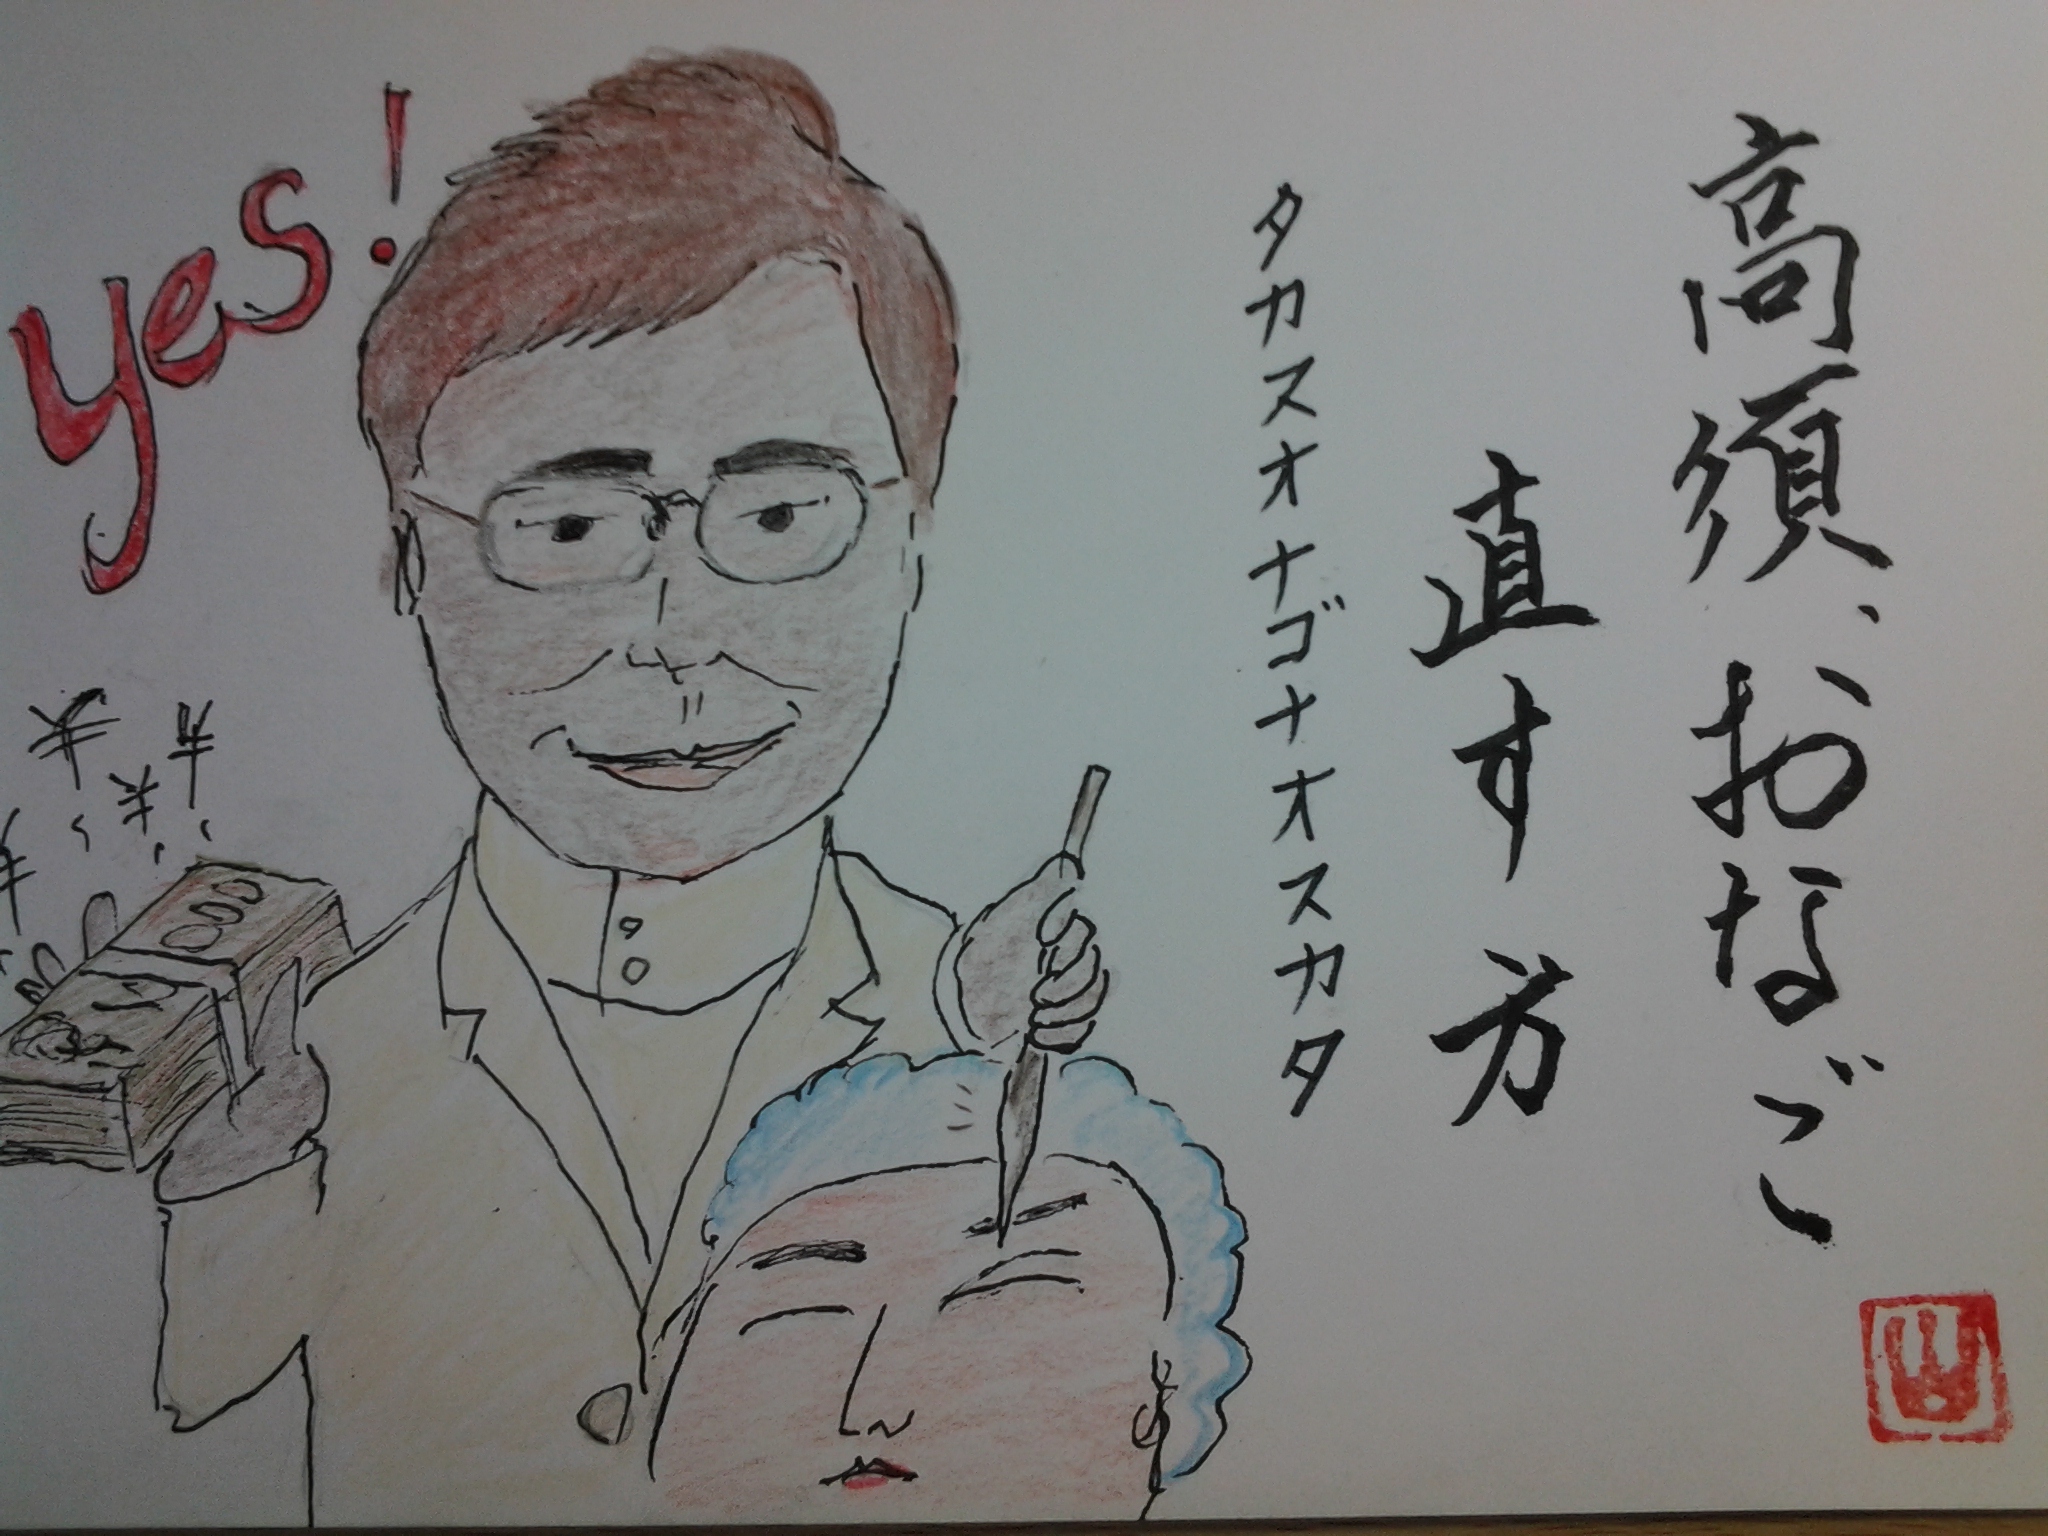 高須、おなご
直す方
タカスオナゴナオスカタ
yes!
¥ ¥ ¥ ¥